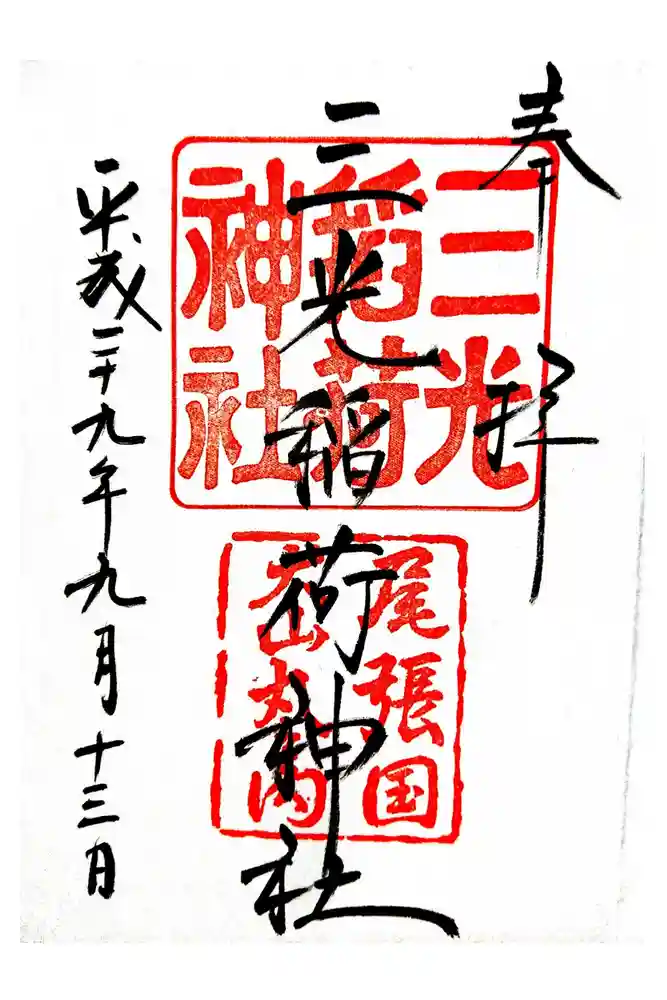 奉拝
三光稲荷神社
平成二十九年九月十三日
三光
稲荷
神社
尾張国